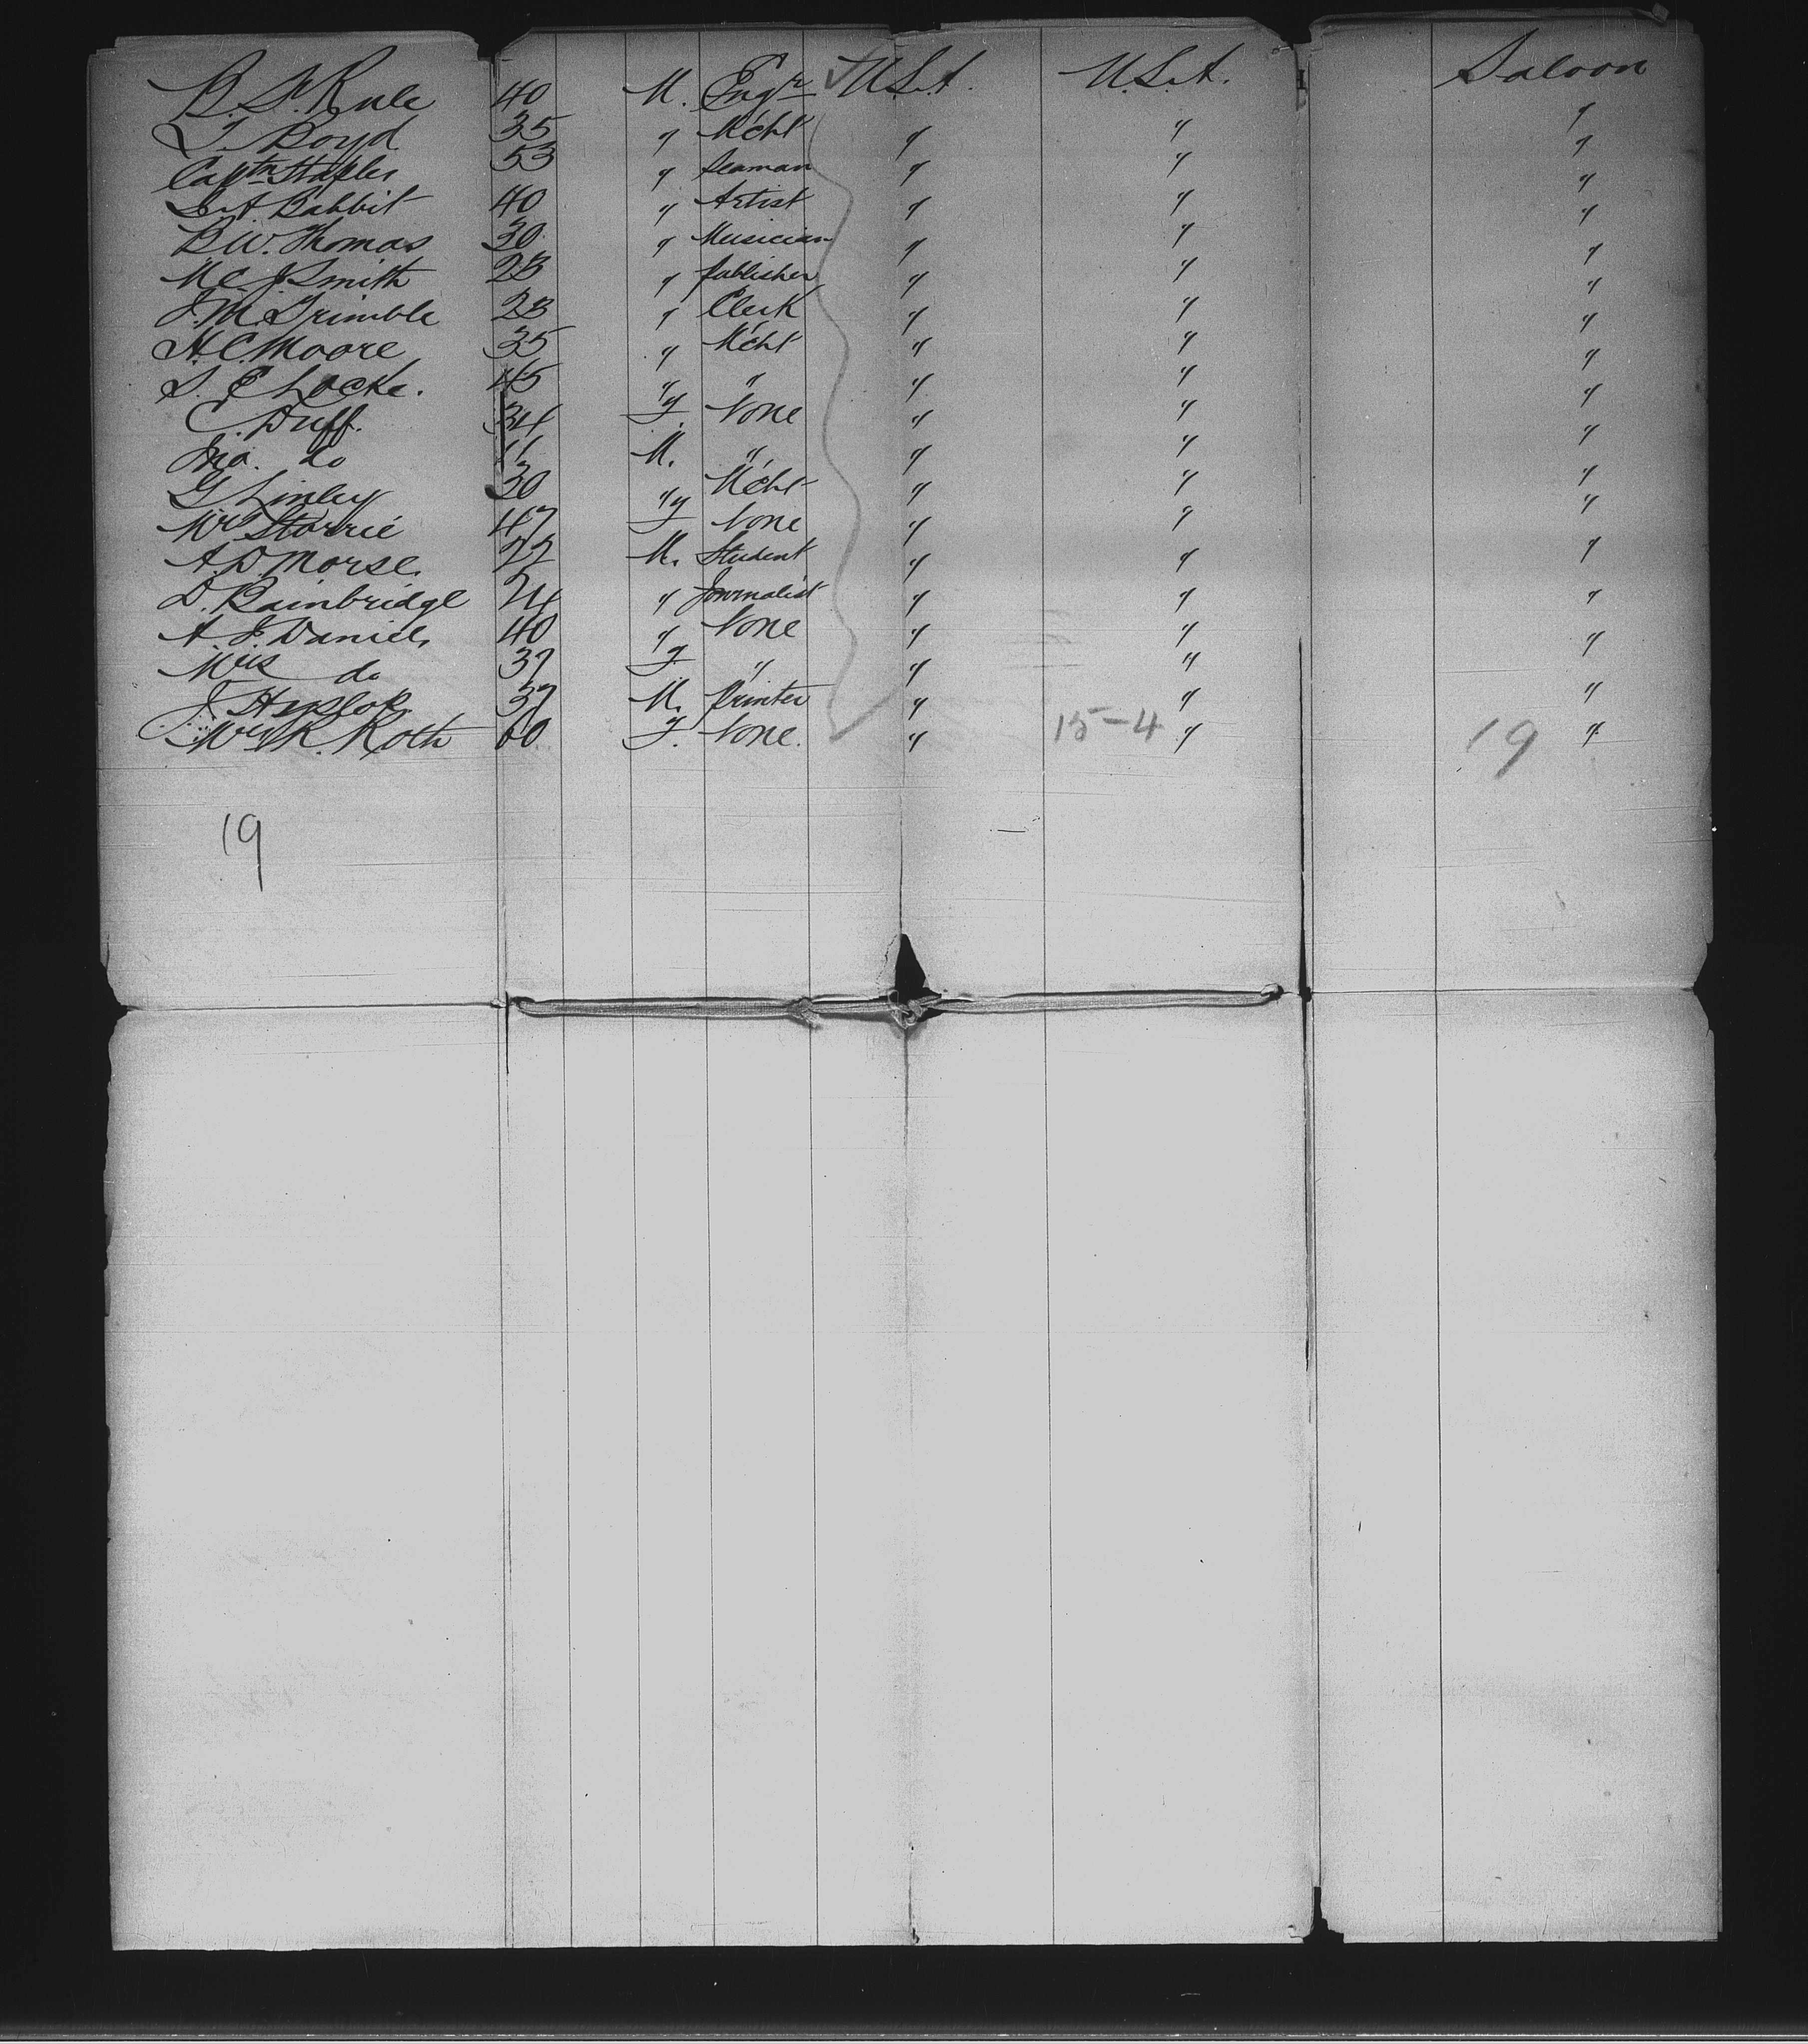 B. F. Rule 40 M. Engr U.S.A. U.S.A. Saloon
T. Boyd 35 " Mcht " " "
Captn Staples 53 " Seaman " " "
L. A. Babbit 40 " Artist " " "
B. W. Thomas 30 " Musician " " "
Mc. J. Smith 28 " Publisher " " "
J. M. Trimble 28 " Clerk " " "
H. C. Moore 35 " Mcht " " "
S. E. Locke. 45 " " " " "
C. Duff. 34 F. None " " "
Jno. do 11 M. " " " "
G. Linley 30 " Mcht " " "
Mrs Storrie 47 F None " " "
A. D. Morse. 22 M. Student " " "
D. Bainbridge 24 " Journalist " " "
A. J. Daniels 40 " None " " "
Mrs do 37 F. " " " "
J. Heyslop 37 M. Printer " " "
Mrs R. Roth 60 F. None. " 15-4 " 19 "
19